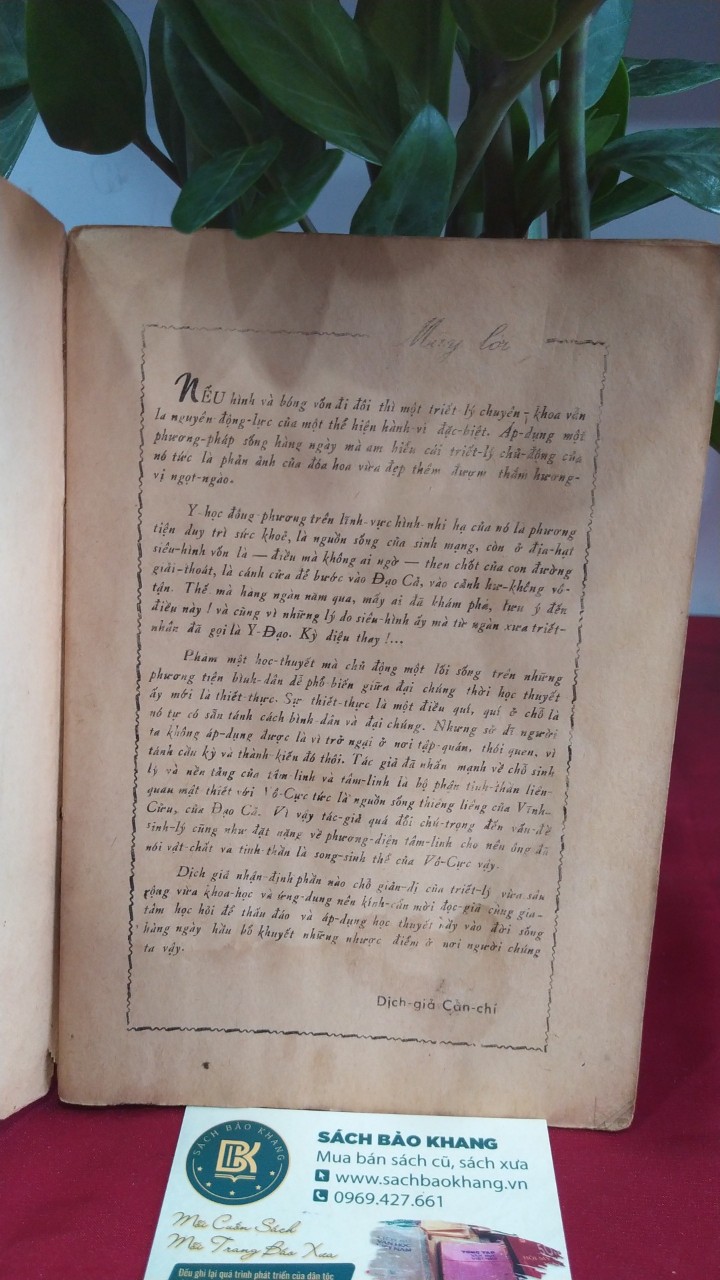 Mấy lời
NẾU hình và bóng vốn đi đôi thì một triết-lý chuyên-khoa vẫn
là nguyên động-lực của một thể hiện hành-vi đặc-biệt. Áp-dụng một
phương-pháp sống hàng ngày mà am hiểu cái triết-lý chủ-động của
nó tức là phản ảnh của đóa hoa vừa đẹp thêm đượm thắm hương-
vị ngọt-ngào.
Y-học đông-phương trên lĩnh-vực hình-nhi hạ của nó là phương
tiện duy trì sức khoẻ, là nguồn sống của sinh mạng, còn ở địa-hạt
siêu-hình vốn là — điều mà không ai ngờ — then chốt của con đường
giải-thoát, là cánh cửa để bước vào Đạo Cả, vào cảnh hư-không vô-
tận. Thế mà hàng ngàn năm qua, mấy ai đã khám phá, lưu ý đến
điều này ! và cũng vì những lý do siêu-hình ấy mà từ ngàn xưa triết-
nhân đã gọi là Y-Đạo. Kỳ diệu thay !...
Phàm một học-thuyết mà chủ động một lối sống trên những
phương tiện bình-dân để phổ-biến giữa đại chúng thời học thuyết
ấy mới là thiết-thực. Sự thiết-thực là một điều quí, quí ở chỗ là
nó tự có sẵn tánh cách bình-dân và đại chúng. Nhưng sở dĩ người
ta không áp-dụng được là vì trở ngại ở nơi tập-quán, thói quen, vì
tánh cầu kỳ và thành-kiến đó thôi. Tác giả đã nhấn mạnh về chỗ sinh
lý và nền tảng của tâm-linh và tâm-linh là bộ phận tinh-thần liên-
quan mật thiết với Vô-Cực tức là nguồn sống thiêng liêng của Vĩnh-
Cửu, của Đạo Cả. Vì vậy tác-giả quá đổi chú-trọng đến vấn-đề
sinh-lý cũng như đặt nặng về phương-diện tâm-linh cho nên ông đã
nói vật-chất và tinh-thần là song-sinh thể của Vô-Cực vậy.
Dịch giả nhận-định phần nào chỗ giản-dị của triết-lý vừa sâu
rộng vừa khoa-học và ứng-dụng nên kính-cẩn mời đọc-giả cùng gia-
tâm học hỏi để thấu đáo và áp-dụng học thuyết nầy vào đời sống
hàng ngày hầu bổ khuyết những nhược điểm ở nơi người chúng
ta vậy.
Dịch-giả Càn-chỉ
SÁCH BẢO KHANG
BK
SÁCH BẢO KHANG
Mua bán sách cũ, sách xưa
www.sachbaokhang.vn
0969.427.661
Mỗi Cuốn Sách
Mỗi Trang Báo Xưa
Đều ghi lại quá trình phát triển của dân tộc